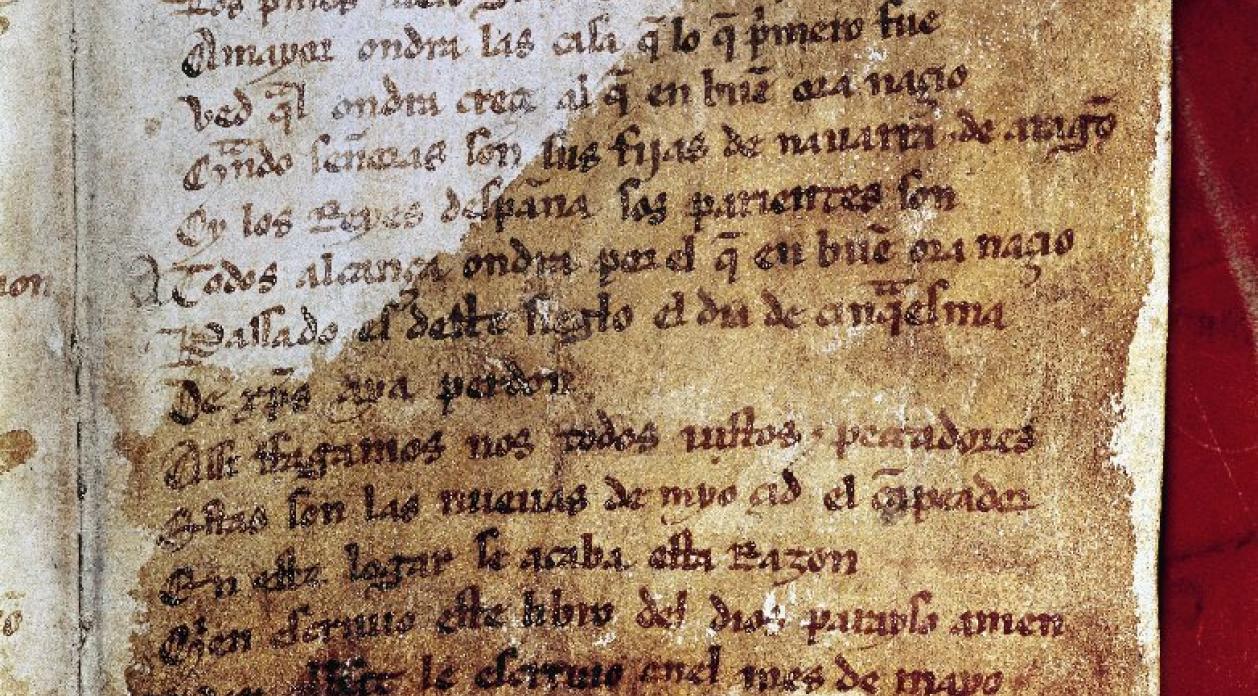 Los
Amayor ondra las casa q̃ lo q̃ pͥmero fue
Ved q̃l ondra creçe al q̃ en buẽ ora naçio
Q̃ndo señoras son sus fijas de nauarra ⁊ de aragõ
Oy los Reyes despaña sos parientes son
A Todos alcança ondra por el q̃ en buẽ ora naçio
Passado es deste sieglo el dia de cinq̃esma
De xp̃s aya perdon
Assi ffagamos nos todos iustos ⁊ peccadores
Estas son las nueuas de myo çid el cãpeador
En este logar se acaba esta Razon
Qͥen escriuio este libro del dios parayso amen
le escriuio enel mes de mayo